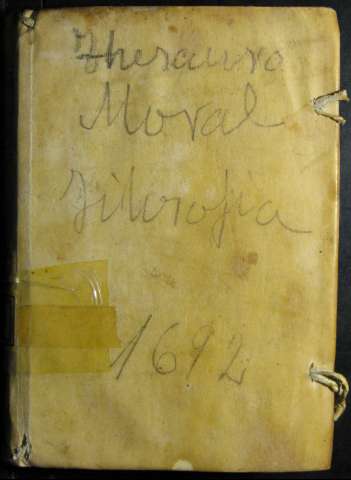 Thesauro
Moral
Filosofia
1692